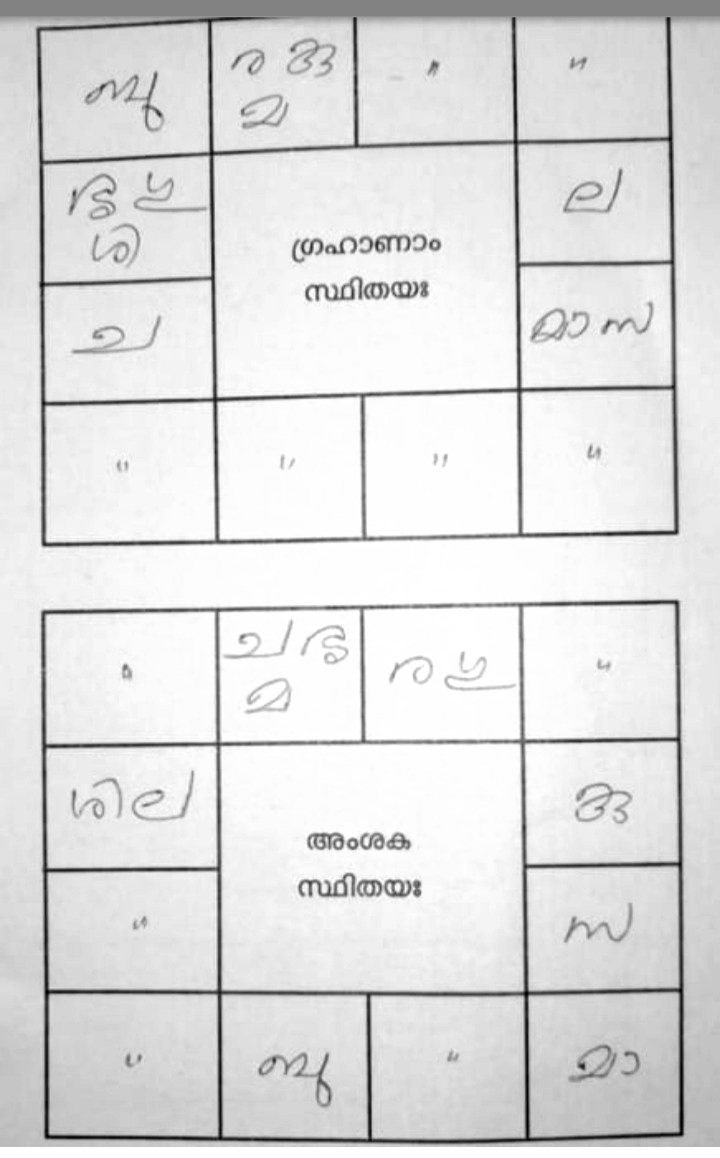 ബു ര " "
മ
ശി ല
ഗ്രഹാണാം
സ്ഥിതയഃ
ച മാ സ
" " " "
" ച "
മ ര
ശി ല
അംശക
സ്ഥിതയഃ
" സ
" ബു " മാ